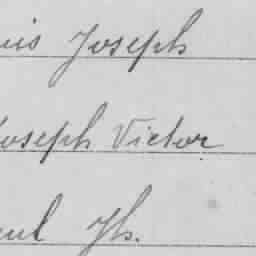 uis Joseph
Joseph Victor
aul Jh.